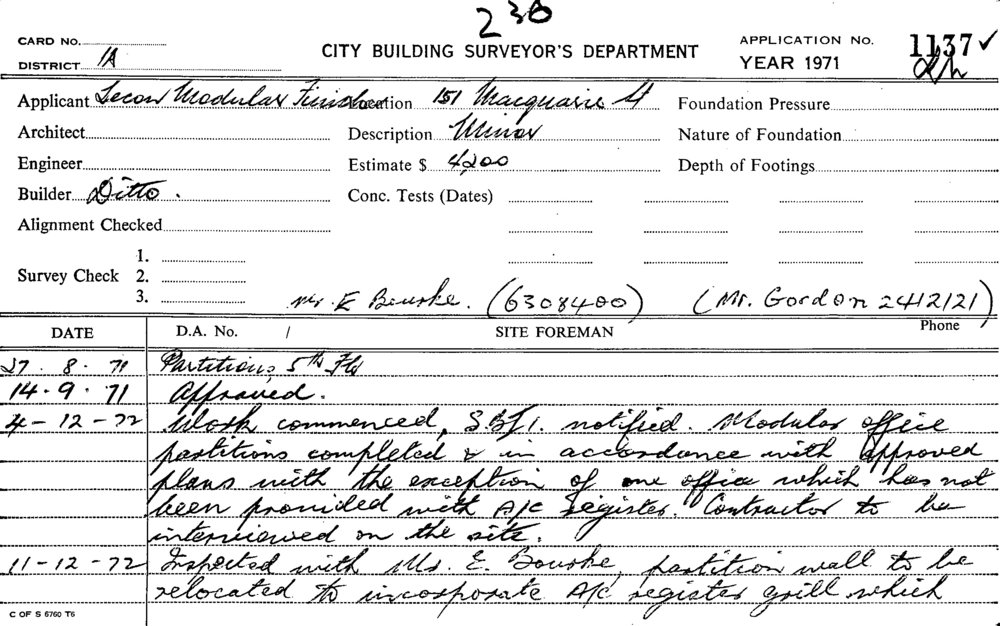 236
CARD No.
DISTRICT 1A
CITY BUILDING SURVEYOR'S DEPARTMENT
APPLICATION No. 1137 ✓
YEAR 1971
Applicant Modular Location 151 Macquarie St Foundation Pressure
Architect Description Minor Nature of Foundation
Engineer Estimate $ 4,200 Depth of Footings
Builder Ditto. Conc. Tests (Dates)
Alignment Checked
1.
Survey Check 2.
3.
Mr. E Bourke. (6308400) (Mr. Gordon 2412121)
DATE D.A. No. / SITE FOREMAN Phone
27. 8. 71 Partitions 5th Flr
14. 9. 71 Approved.
4-12-72 Work commenced, S.B.I. notified. Modular office
partitions completed & in accordance with approved
plans with the exception of one office which has not
been provided with A/c register. Contractor to be
interviewed on the site.
11-12-72 Inspected with Mr. E. Bourke, partition wall to be
relocated to incorporate A/c register grill which
C OF S 6760 T6